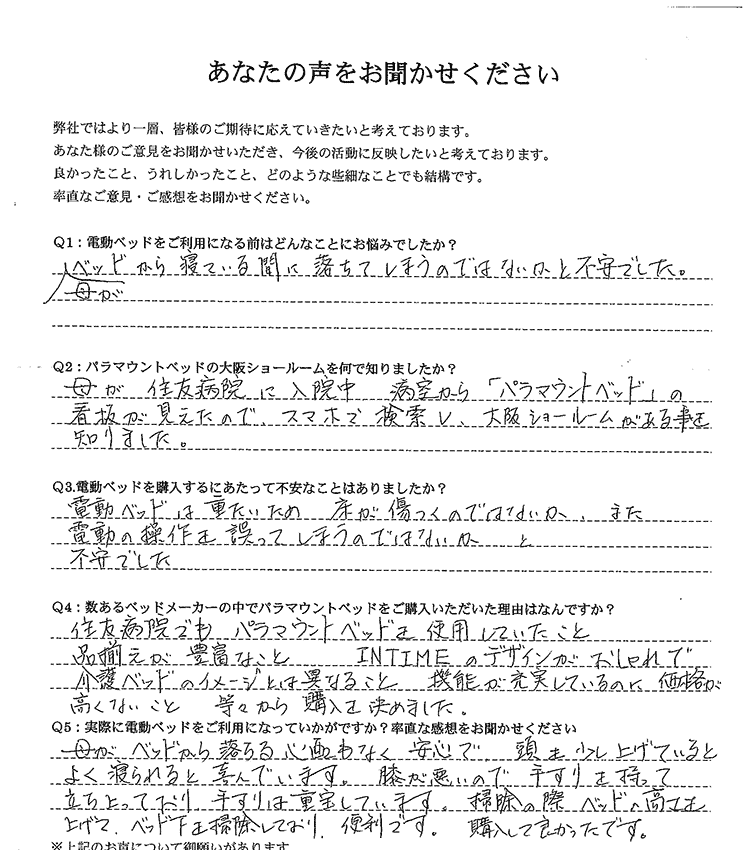 あなたの声をお聞かせください
弊社ではより一層、皆様のご期待に応えていきたいと考えております。
あなた様のご意見をお聞かせいただき、今後の活動に反映したいと考えております。
良かったこと、うれしかったこと、どのような些細なことでも結構です。
率直なご意見・ご感想をお聞かせください。
Q1：電動ベッドをご利用になる前はどんなことにお悩みでしたか？
ベッドから寝ている間に落ちてしまうのではないかと不安でした。
母が
Q2：パラマウントベッドの大阪ショールームを何で知りましたか？
母が 住友病院に入院中 病室から「パラマウントベッド」の
看板が見えたので、スマホで検索し、大阪ショールームがある事を
知りました。
Q3.電動ベッドを購入するにあたって不安なことはありましたか？
電動ベッドは重たいため 床が傷つくのではないか、また
電動の操作を誤ってしまうのではないか と
不安でした
Q4：数あるベッドメーカーの中でパラマウントベッドをご購入いただいた理由はなんですか？
住友病院でも パラマウントベッドを使用していたこと
品揃えが豊富なこと INTIMEのデザインがおしゃれで
介護ベッドのイメージとは異なること 機能が充実しているのに価格が
高くないこと 等々から購入を決めました。
Q5：実際に電動ベッドをご利用になっていかがですか？率直な感想をお聞かせください
母がベッドから落ちる心配もなく 安心で、頭を少し上げていると
よく寝られると喜んでいます。膝が悪いので 手すりを持って
立ち上っており 手すりは重宝しています。掃除の際 ベッドの高さを
上げて、ベッド下を掃除しており、便利です。購入して良かったです。
※上記のお声について御願いがあります